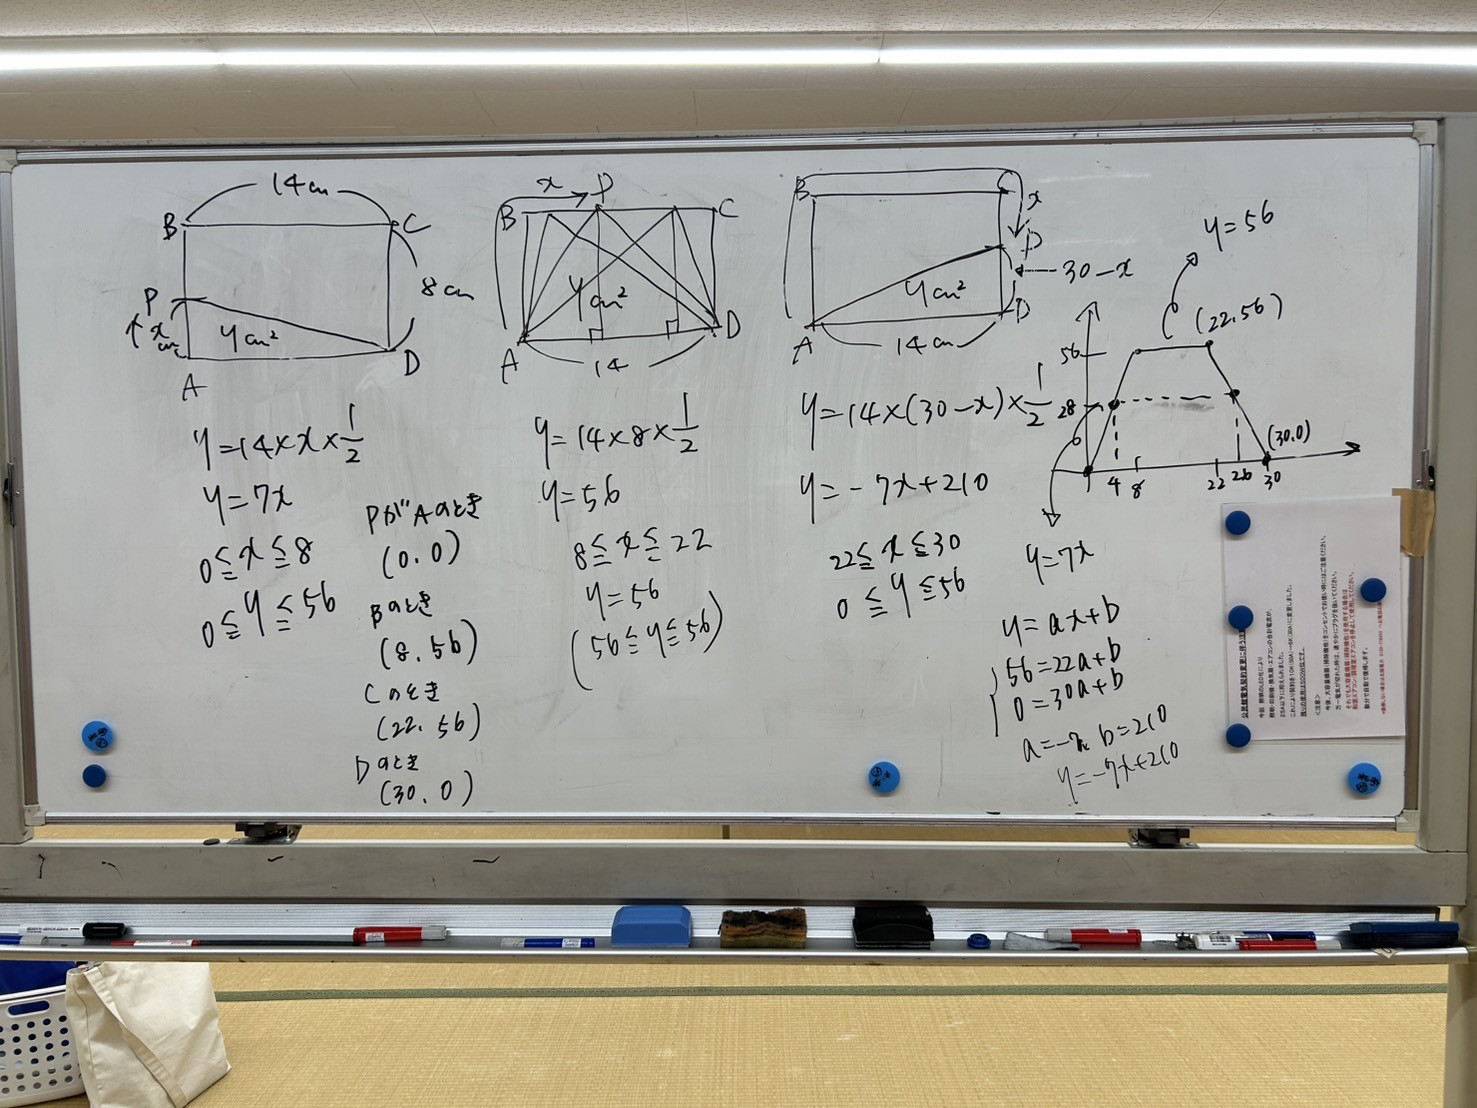 14cm
B
C
8cm
P
x cm
ycm²
A
D
y=14×x×1/2
y=7x
0≦x≦8
0≦y≦56
PがAのとき
(0.0)
Bのとき
(8.56)
Cのとき
(22.56)
Dのとき
(30.0)
x
P
B
C
ycm²
A
D
14
y=14×8×1/2
y=56
8≦x≦22
y=56
(56≦y≦56)
B
C
x
P
30-x
ycm²
D
A
14cm
y=14×(30-x)×1/2
y=-7x+210
22≦x≦30
0≦y≦56
y=56
(22.56)
56
28
(30.0)
4
8
22
26
30
y=7x
y=ax+b
56=22a+b
0=30a+b
a=-7, b=210
y=-7x+210